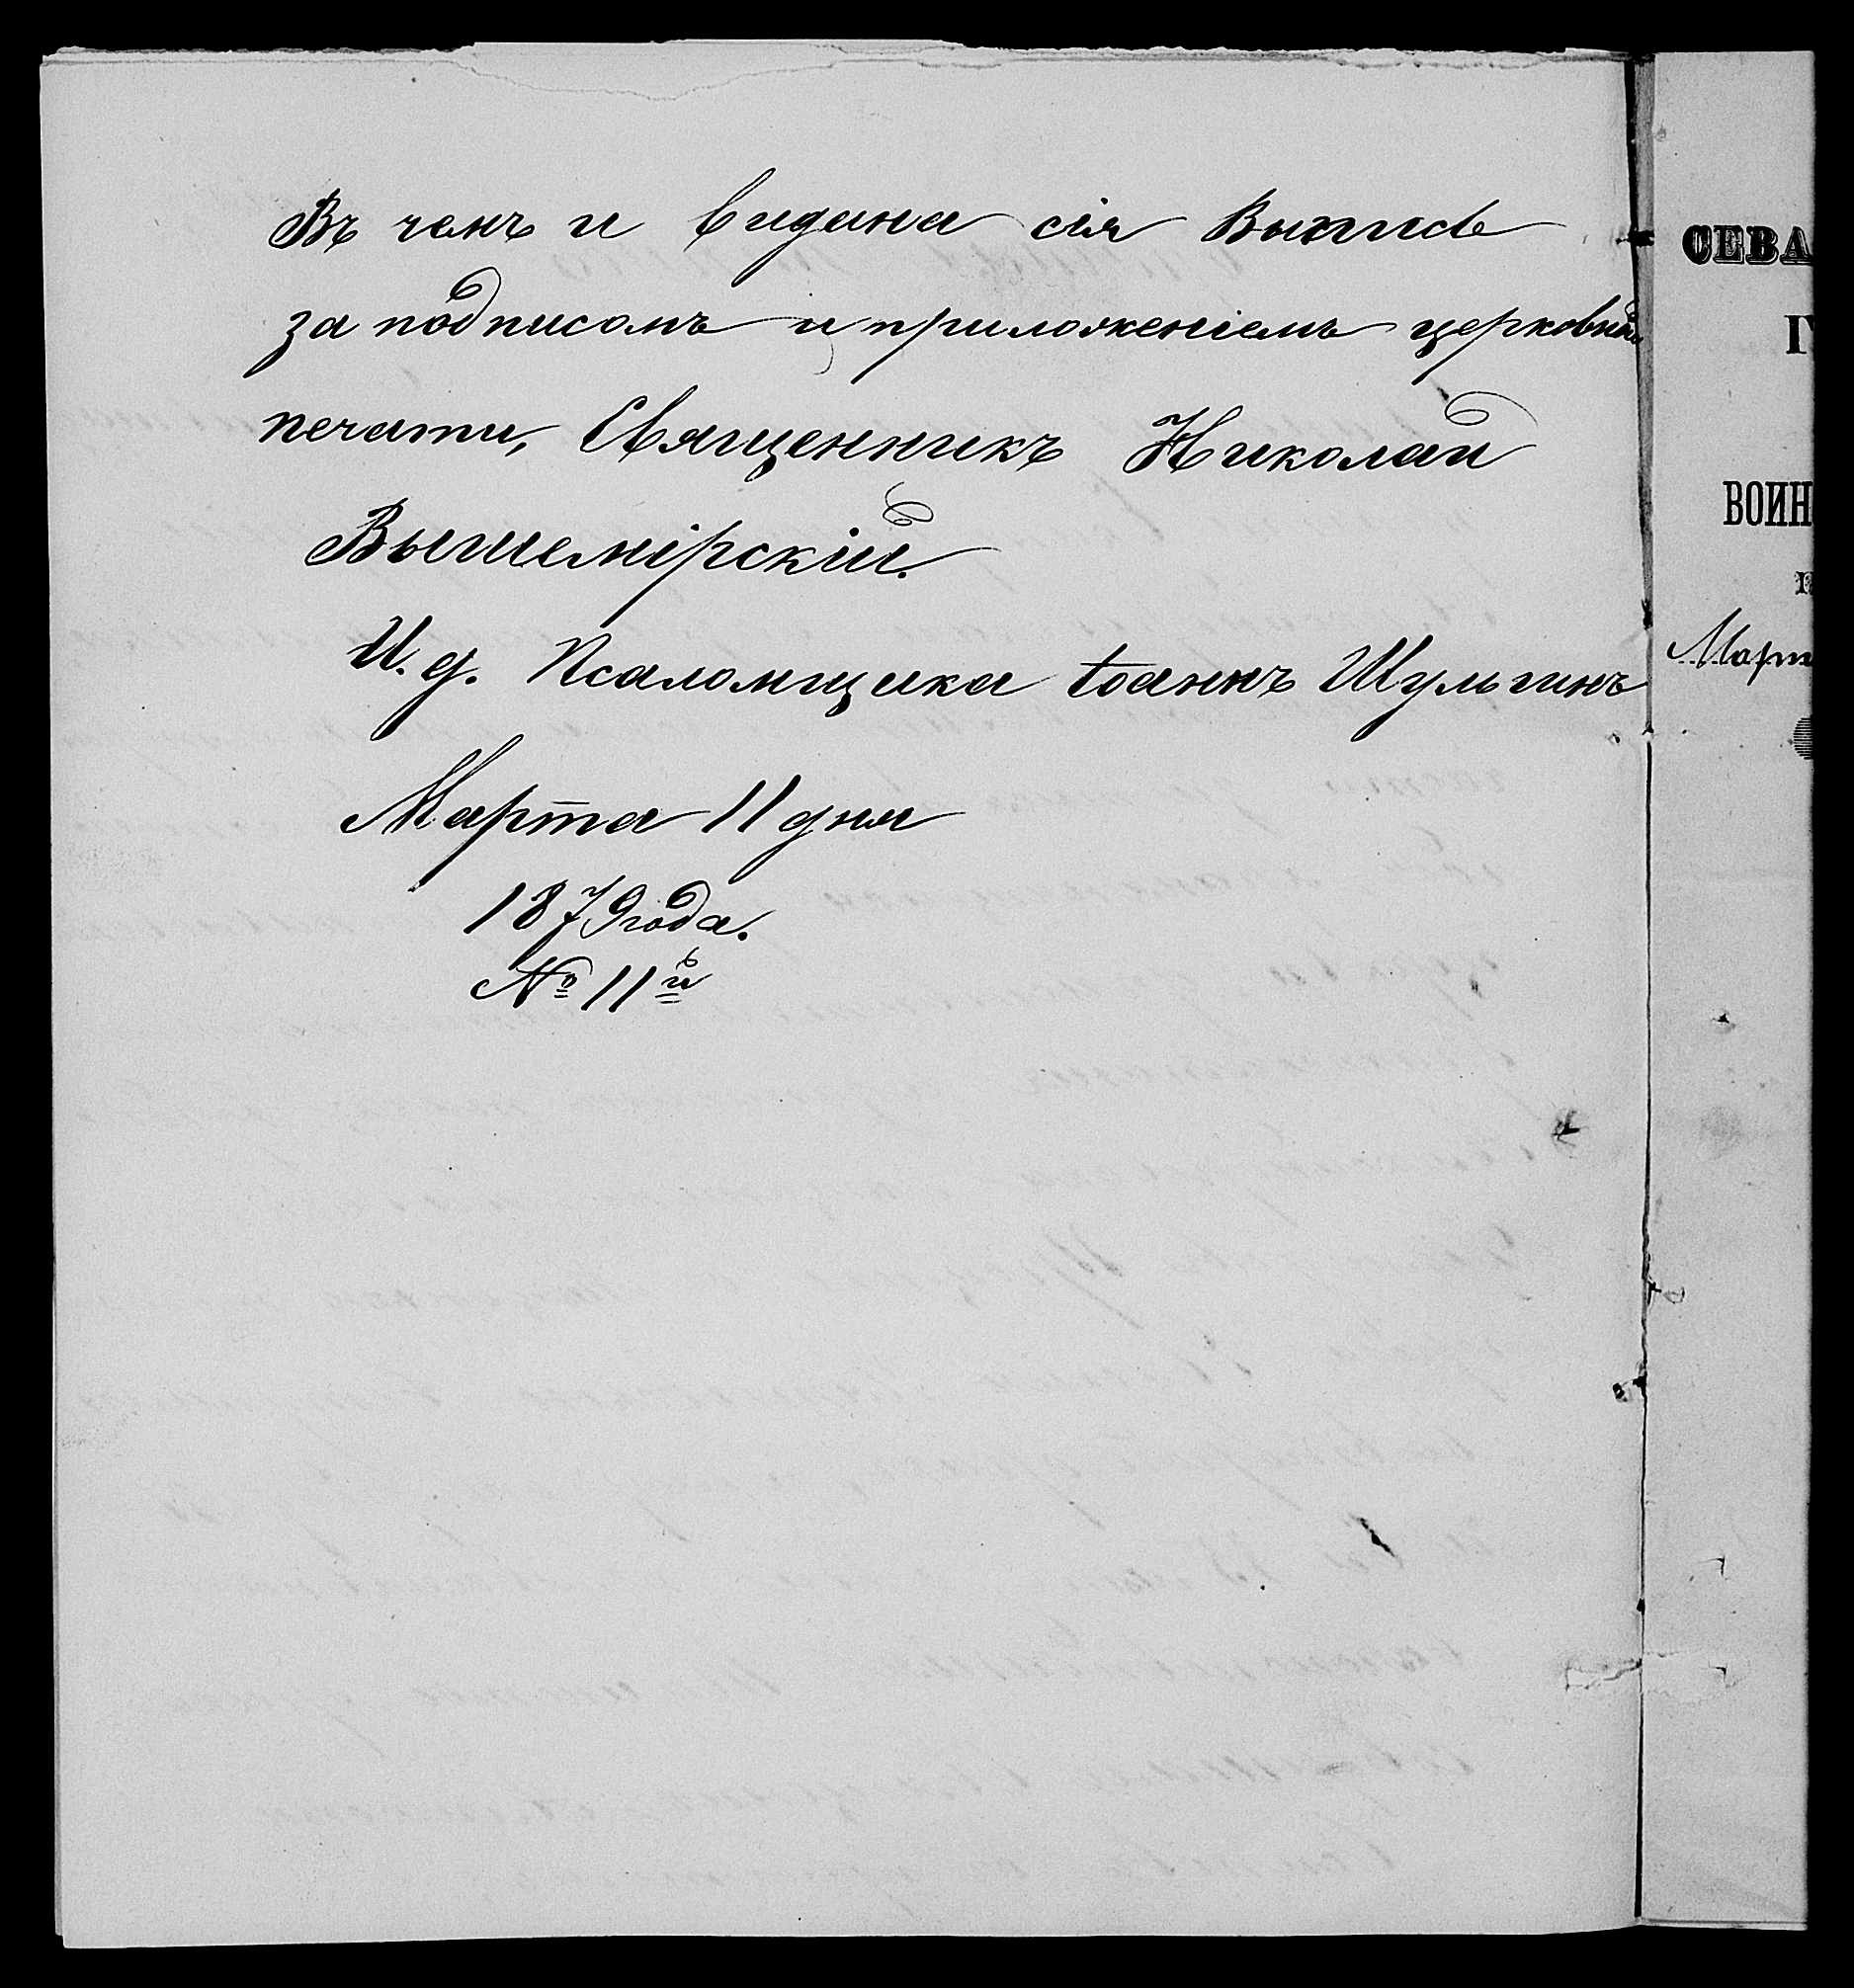 Въ чемъ и видана сія Выпись
за подписомъ и приложеніемъ церковной
печати, Священникъ Николай
Вышемірскій.
И. д. Псаломщика Іоаннъ Шульгинъ
Марта 11 дня
1879 года.
№ 11й
СЕВА
ВОИН
Март